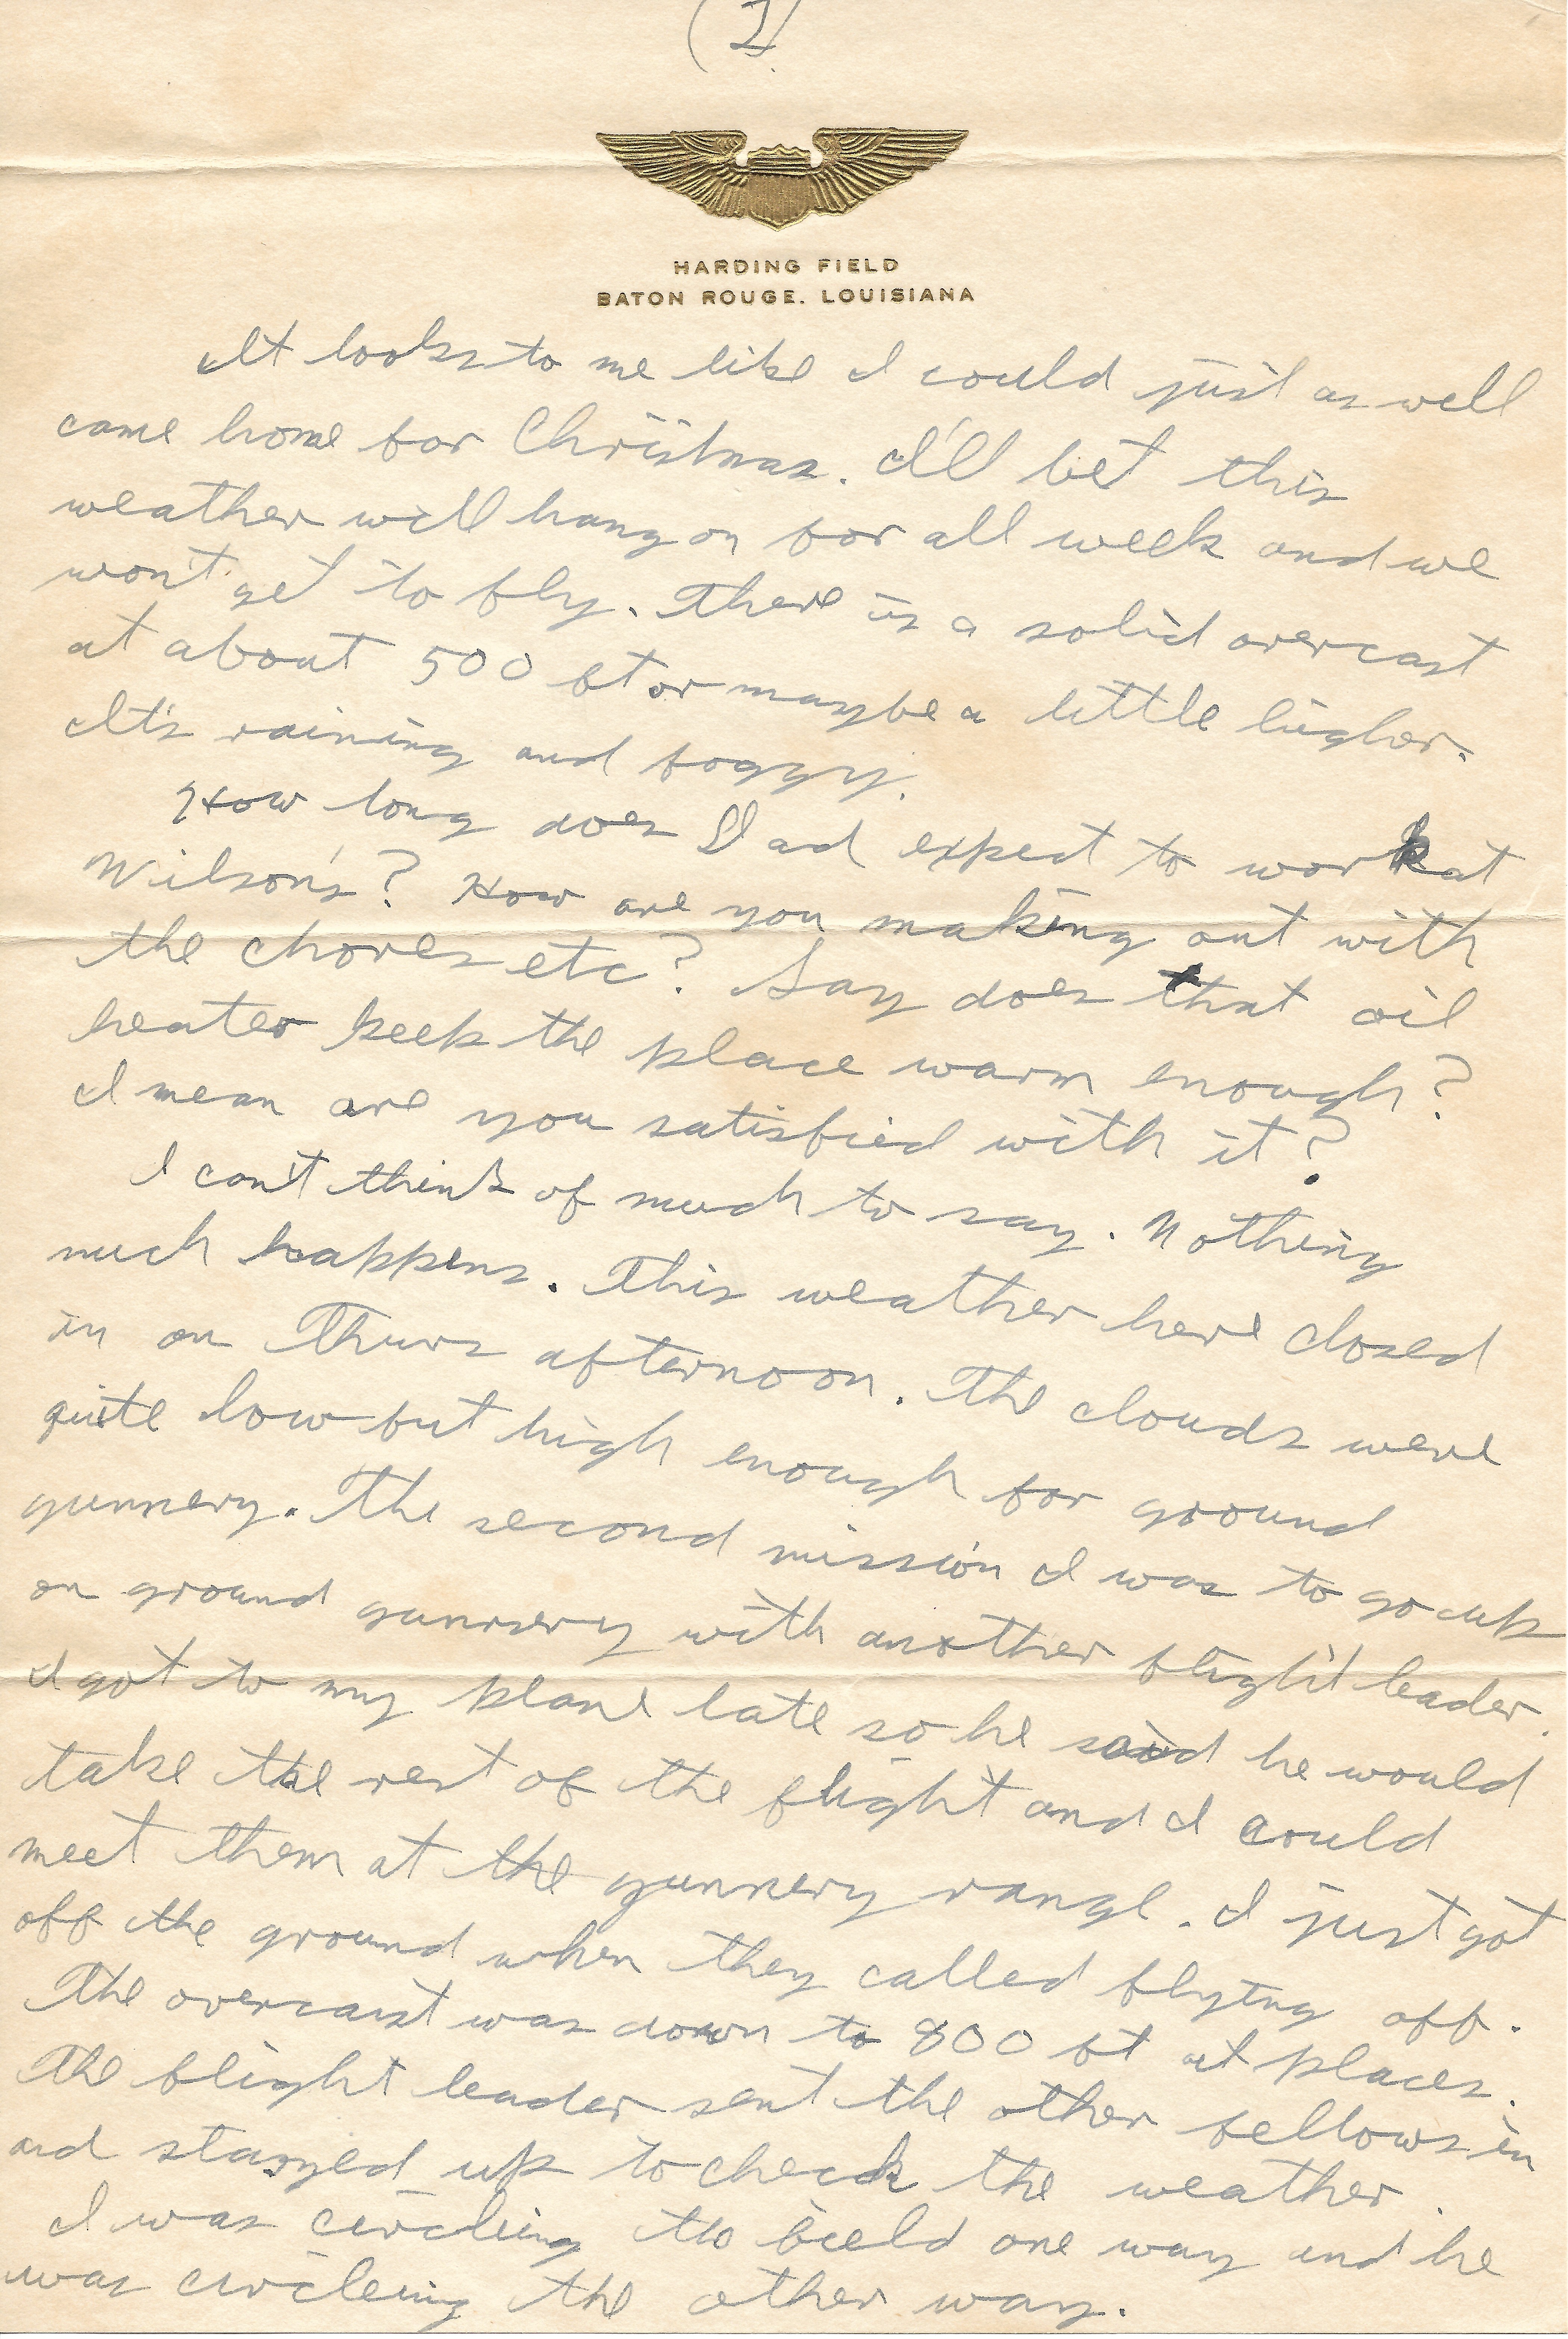 (1)
HARDING FIELD
BATON ROUGE, LOUISIANA
It looks to me like I could just as well
come home for Christmas. I'll bet this
weather will hang on for all week and we
won't get to fly. There is a solid overcast
at about 500 ft or maybe a little higher.
It's raining and foggy.
How long does Dad expect to work at
Wilson's? How are you making out with
the chores etc? Say does that oil
heater keep the place warm enough?
I mean are you satisfied with it?
I can't think of much to say. Nothing
much happens. This weather here closed
in on Thurs afternoon. The clouds were
quite low but high enough for ground
gunnery. The second mission I was to go up
on ground gunnery with another flight leader.
I got to my plane late so he said he would
take the rest of the flight and I could
meet them at the gunnery range. I just got
off the ground when they called flying off.
The overcast was down to 800 ft at places.
The flight leader sent the other fellows in
and stayed up to check the weather.
I was circling the field one way and he
was circleing the other way.